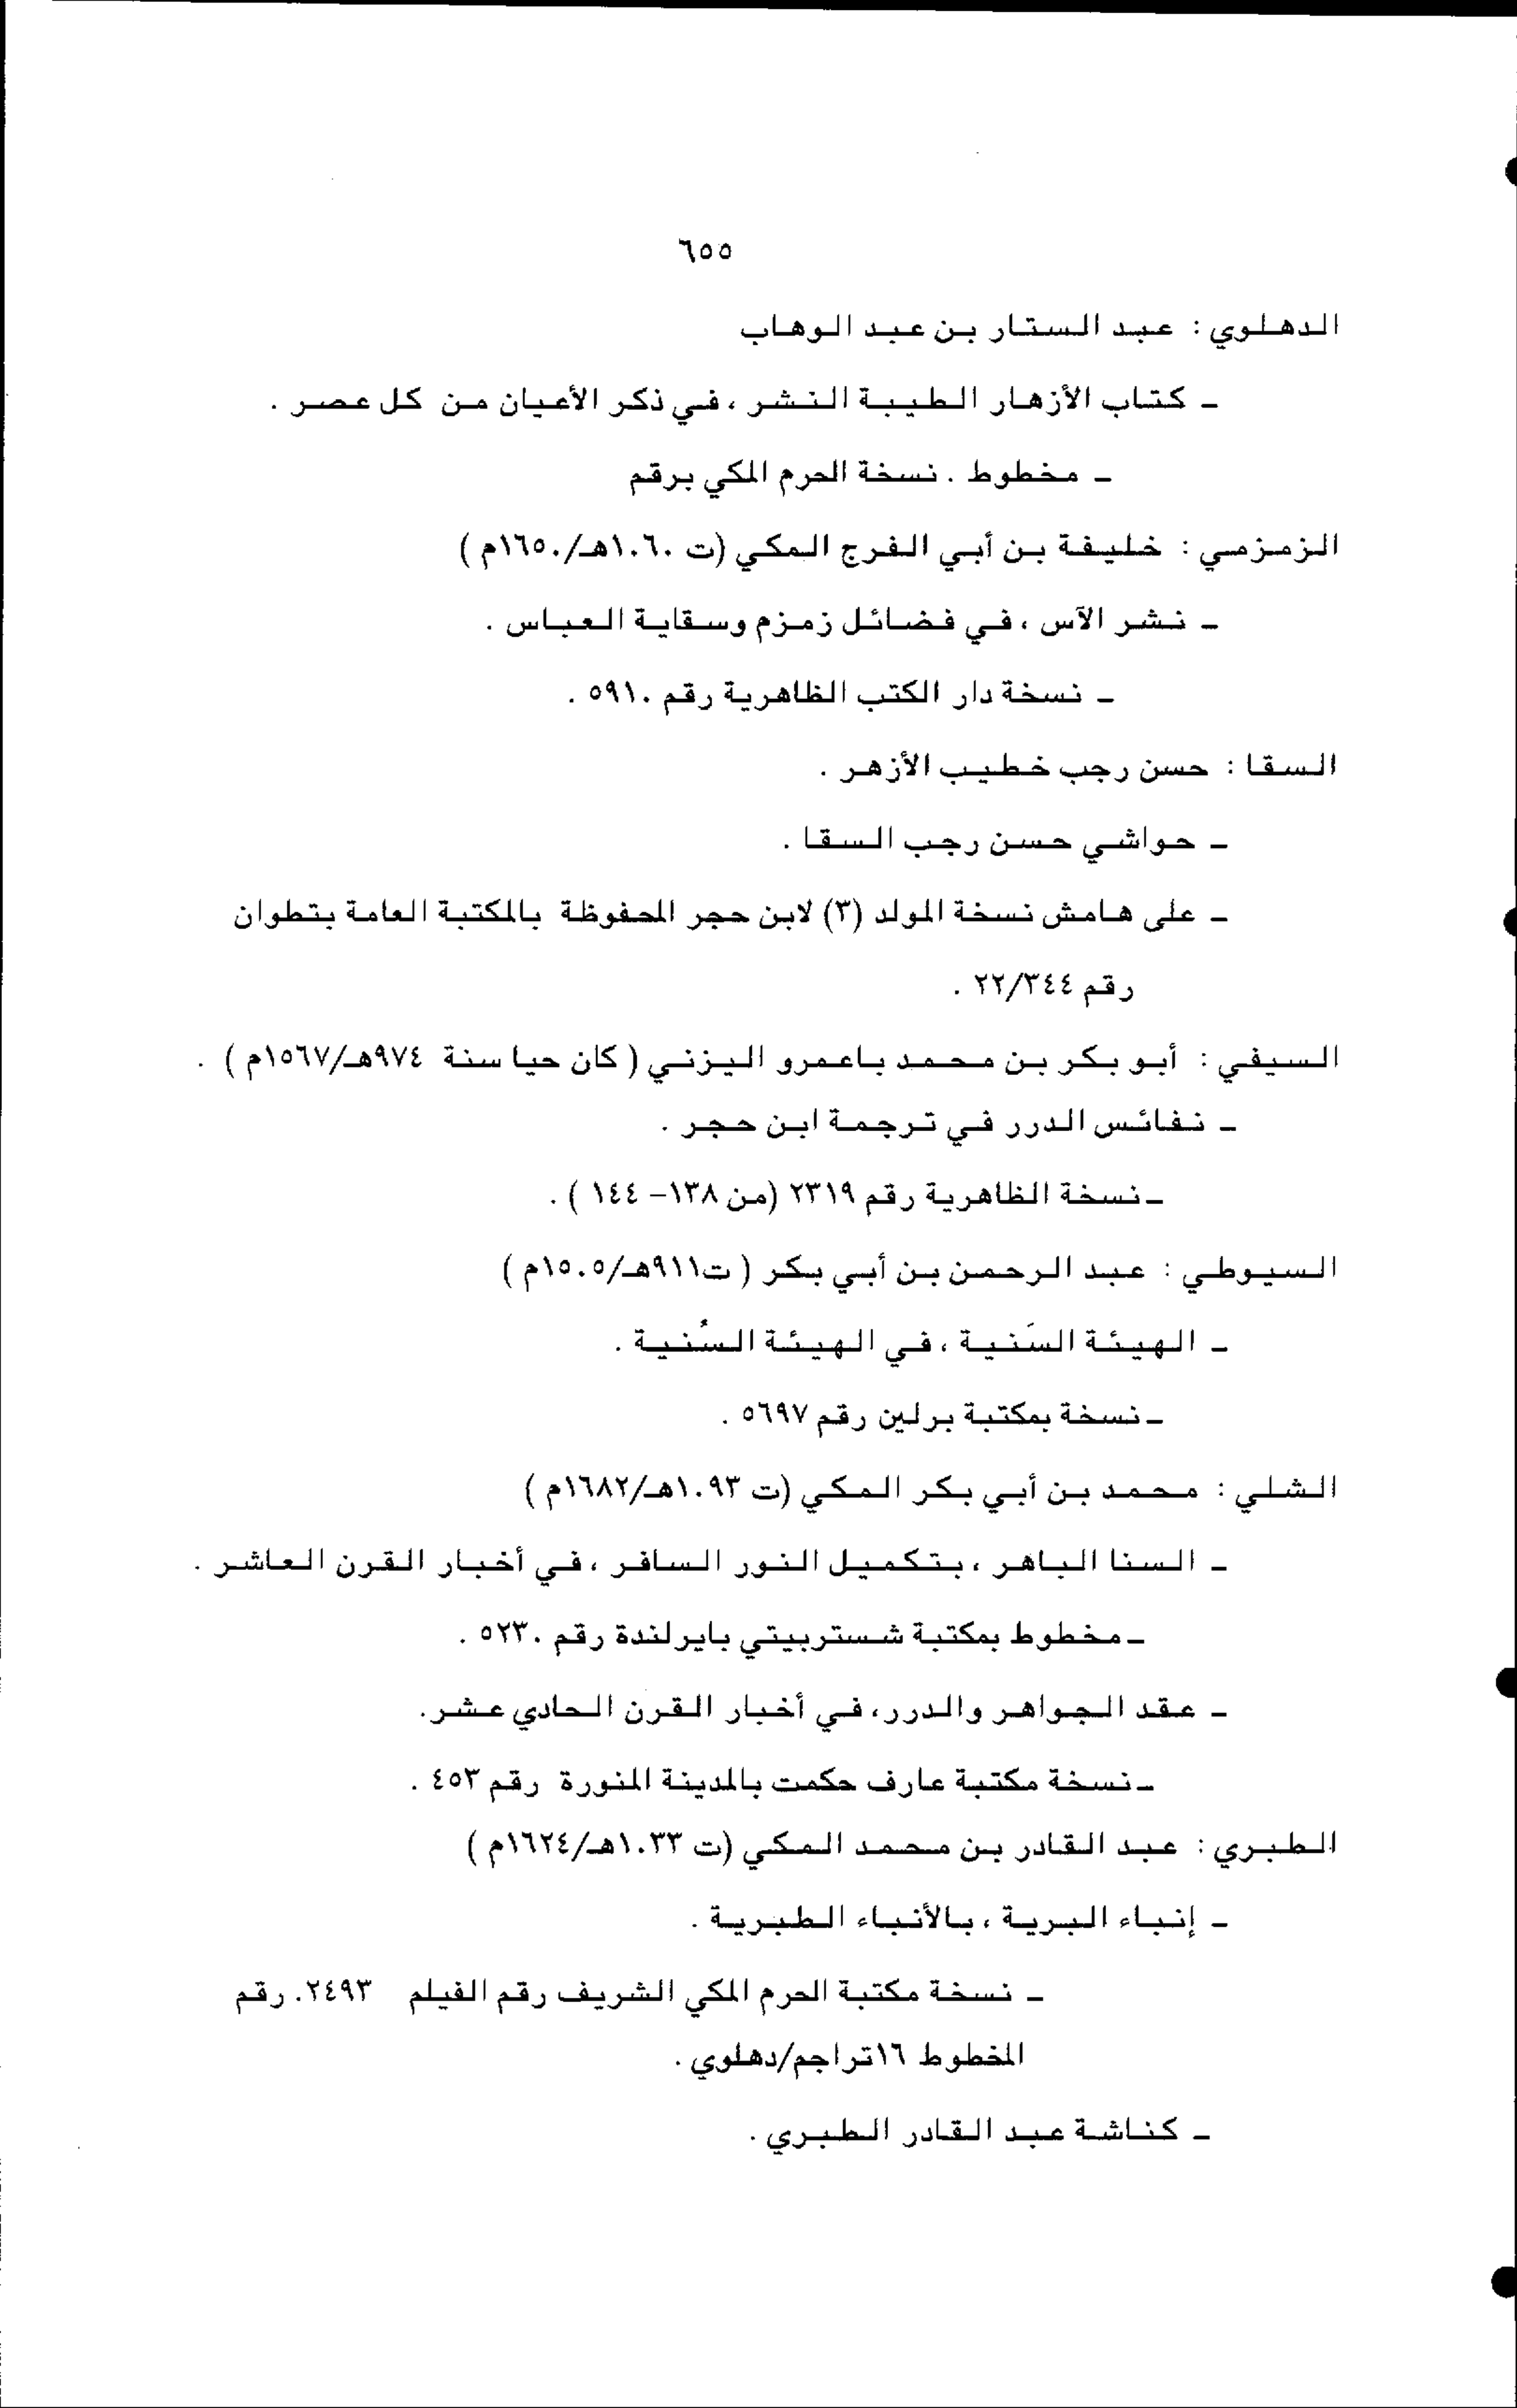 ٦٥٥
الدهلوي : عبد الستار بن عبد الوهاب
ـ كتاب الأزهار الطيبة النشر ، في ذكر الأعيان من كل عصر .
ـ مخطوط . نسخة الحرم المكي برقم
الزمزمي : خليفة بن أبي الفرج المكي (ت ١٠٦٠هـ/١٦٥٠م )
ـ نشر الآس ، في فضائل زمزم وسقاية العباس .
ـ نسخة دار الكتب الظاهرية رقم ٥٩١٠ .
السقا : حسن رجب خطيب الأزهر .
ـ حواشي حسن رجب السقا .
ـ على هامش نسخة المولد (٣) لابن حجر المحفوظة بالمكتبة العامة بتطوان
رقم ٢٢/٣٤٤ .
السيفي : أبو بكر بن محمد باعمرو اليزني ( كان حيا سنة ٩٧٤هـ/١٥٦٧م ) .
ـ نفائس الدرر في ترجمة ابن حجر .
ـ نسخة الظاهرية رقم ٢٣١٩ (من ١٣٨– ١٤٤ ) .
السيوطي : عبد الرحمن بن أبي بكر ( ت٩١١هـ/١٥٠٥م )
ـ الهيئة السَنية ، في الهيئة السُنية .
ـ نسخة بمكتبة برلين رقم ٥٦٩٧ .
الشلي : محمد بن أبي بكر المكي (ت ١٠٩٣هـ/١٦٨٢م )
ـ السنا الباهر ، بتكميل النور السافر ، في أخبار القرن العاشر .
ـ مخطوط بمكتبة شستربيتي بايرلندة رقم ٥٢٣٠ .
ـ عقد الجواهر والدرر، في أخبار القرن الحادي عشر.
ـ نسخة مكتبة عارف حكمت بالمدينة المنورة رقم ٤٥٣ .
الطبري : عبد القادر بن محمد المكي (ت ١٠٣٣هـ/١٦٢٤م )
ـ إنباء البرية ، بالأنباء الطبرية .
ـ نسخة مكتبة الحرم المكي الشريف رقم الفيلم ٢٤٩٣. رقم
المخطوط ١٦تراجم/دهلوي .
ـ كناشة عبد القادر الطبري .